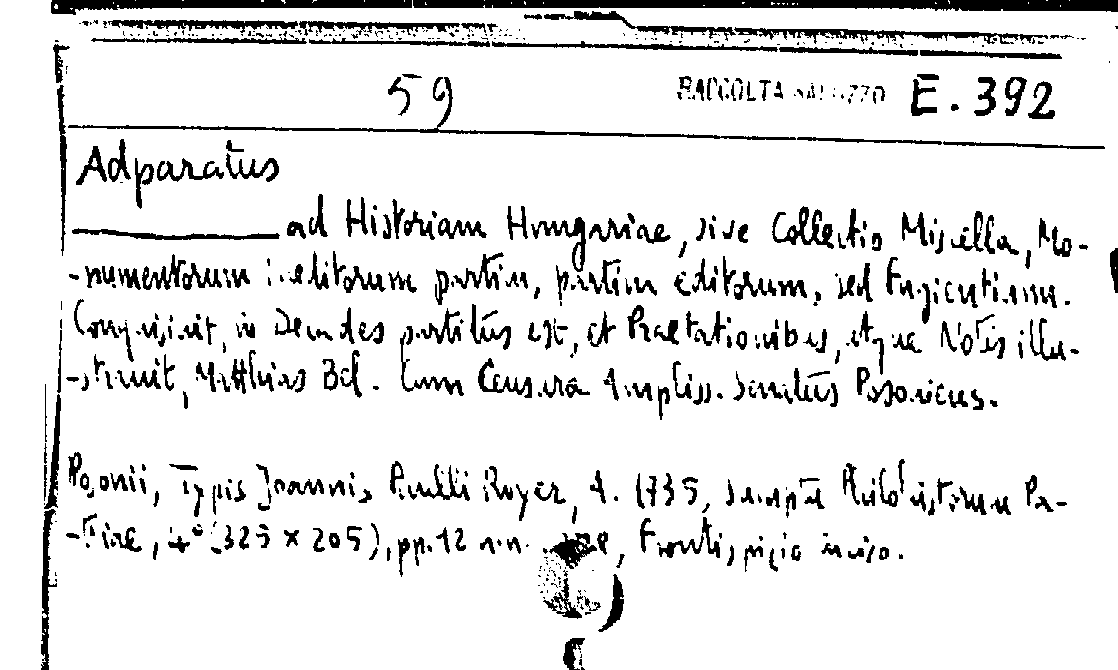 59 RACCOLTA SALUZZO E.392
Adparatus
ad Historiam Hungariae, sive Collectio Miscella, Mo-
-numentorum ineditorum partim, partim editorum, sed fugientium.
Conquisivit, in Decades partitus est, et Praefationibus, atque Notis illu-
-struit, Matthias Bel. Cum Censura Ampliss. Senatus Posoniens.
Posonii, Typis Joannis Paulli Royer, A. 1735, sumptu Philohistorum Pa-
-triae, 4° (325 x 205), pp. 12 n.n. Frontispizio inciso.